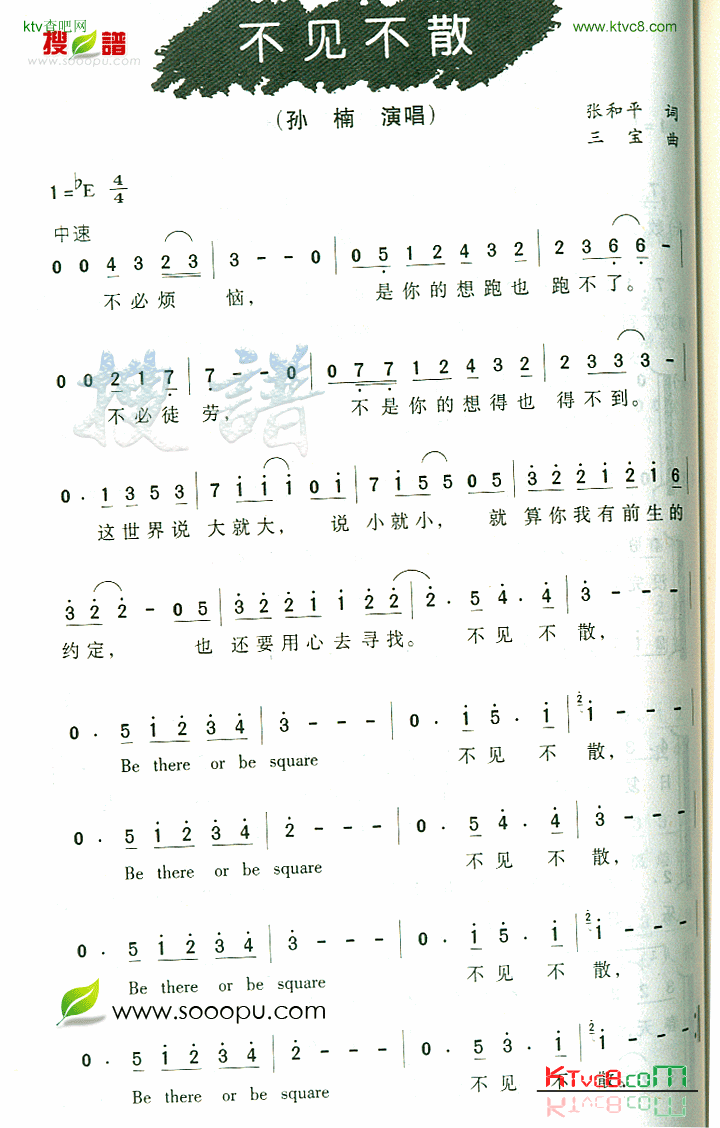 ktv查吧网
www.ktvc8.com
搜譜
www.sooopu.com
不见不散
(孙 楠 演唱)
张和平 词
三 宝 曲
1=♭E 4/4
中速
0 0 4 3 2 3 | 3 - - 0 | 0 5 1 2 4 3 2 | 2 3 6 6 -
不必烦 恼, 是你的想跑也 跑不了。
0 0 2 1 7 | 7 - - 0 | 0 7 7 1 2 4 3 2 | 2 3 3 3 -
不必徒 劳, 不是你的想得也 得不到。
0 . 1 3 5 3 | 7 i i i 0 i | 7 i 5 5 0 5 | 3 2 2 i 2 i 6
这世界说 大就大, 说 小就小, 就 算你我有前生的
3 2 2 - 0 5 | 3 2 2 i i 2 2 | 2 . 5 4 . 4 | 3 - - -
约定, 也 还要用心去寻找。 不见 不 散,
0 . 5 i 2 3 4 | 3 - - - | 0 . i 5 . i | 2 i - - -
Be there or be square 不见 不 散,
0 . 5 i 2 3 4 | 2 - - - | 0 . 5 4 . 4 | 3 - - - :
Be there or be square 不见 不 散,
0 . 5 i 2 3 4 | 3 - - - | 0 . i 5 . i | 2 i - - -
Be there or be square 不见 不 散,
www.sooopu.com
0 . 5 i 2 3 4 | 2 - - - | 0 . 5 3 . i | 2 i - - -
Be there or be square 不见 不 散,
KTvc8.com